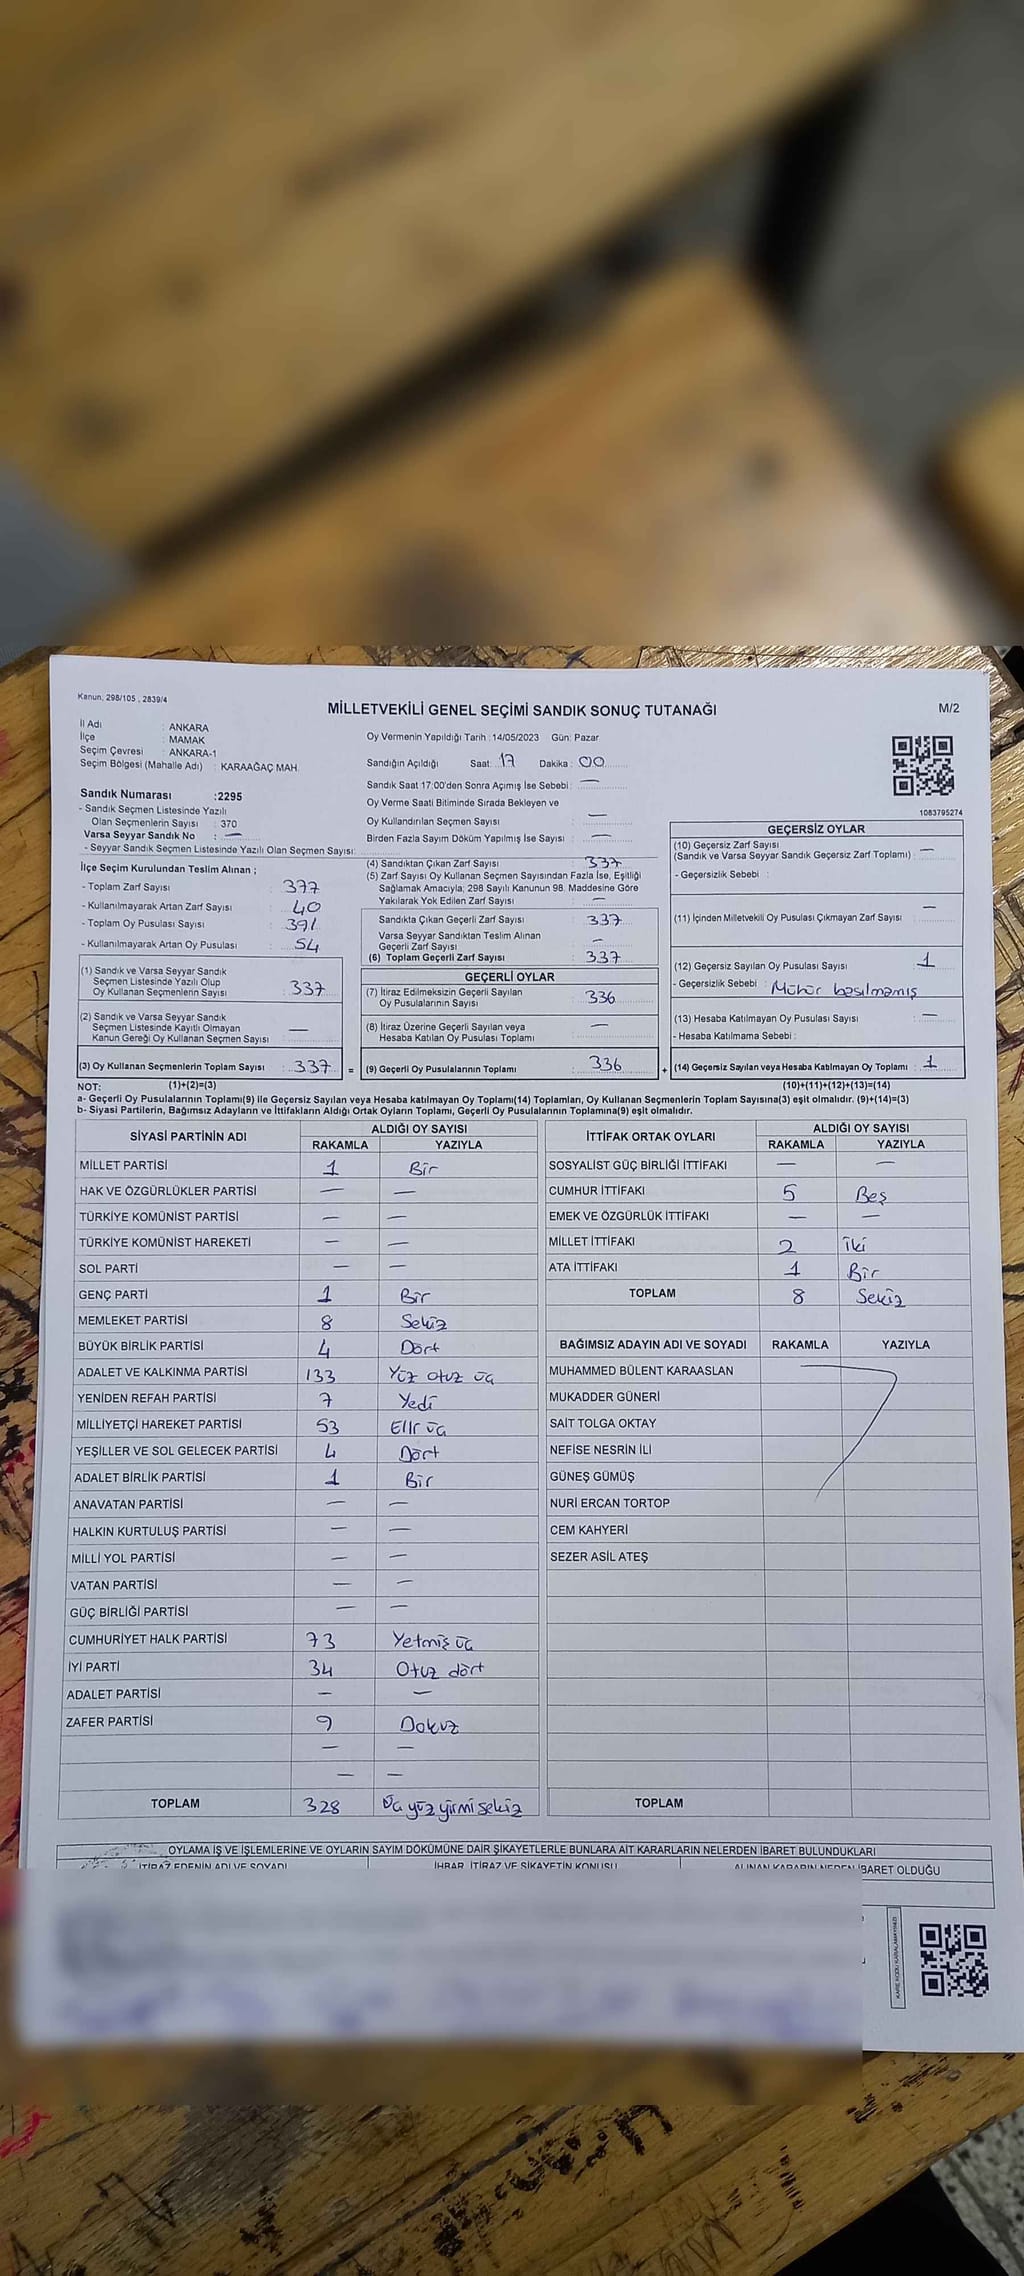 Kanun, 298/105 , 2839/4
MİLLETVEKİLİ GENEL SEÇİMİ SANDIK SONUÇ TUTANAĞI
M/2
İl Adı : ANKARA
İlçe : MAMAK
Seçim Çevresi : ANKARA-1
Seçim Bölgesi (Mahalle Adı) : KARAAĞAÇ MAH.
Sandık Numarası :2295
- Sandık Seçmen Listesinde Yazılı
Olan Seçmenlerin Sayısı : 370
Varsa Seyyar Sandık No : —
- Seyyar Sandık Seçmen Listesinde Yazılı Olan Seçmen Sayısı:
Oy Vermenin Yapıldığı Tarih : 14/05/2023 Gün: Pazar
Sandığın Açıldığı Saat: 17 Dakika : 00
Sandık Saat 17:00'den Sonra Açımış İse Sebebi : —
Oy Verme Saati Bitiminde Sırada Bekleyen ve
Oy Kullandırılan Seçmen Sayısı : —
Birden Fazla Sayım Döküm Yapılmış İse Sayısı : —
1083795274
İlçe Seçim Kurulundan Teslim Alınan ;
- Toplam Zarf Sayısı : 377
- Kullanılmayarak Artan Zarf Sayısı : 40
- Toplam Oy Pusulası Sayısı : 391
- Kullanılmayarak Artan Oy Pusulası : 54
(1) Sandık ve Varsa Seyyar Sandık
Seçmen Listesinde Yazılı Olup
Oy Kullanan Seçmenlerin Sayısı : 337
(2) Sandık ve Varsa Seyyar Sandık
Seçmen Listesinde Kayıtlı Olmayan
Kanun Gereği Oy Kullanan Seçmen Sayısı : —
(3) Oy Kullanan Seçmenlerin Toplam Sayısı : 337 =
(4) Sandıktan Çıkan Zarf Sayısı : 337
(5) Zarf Sayısı Oy Kullanan Seçmen Sayısından Fazla İse, Eşitliği
Sağlamak Amacıyla; 298 Sayılı Kanunun 98. Maddesine Göre
Yakılarak Yok Edilen Zarf Sayısı : —
Sandıkta Çıkan Geçerli Zarf Sayısı : 337
Varsa Seyyar Sandıktan Teslim Alınan
Geçerli Zarf Sayısı : —
(6) Toplam Geçerli Zarf Sayısı : 337
GEÇERLİ OYLAR
(7) İtiraz Edilmeksizin Geçerli Sayılan
Oy Pusulalarının Sayısı : 336
(8) İtiraz Üzerine Geçerli Sayılan veya
Hesaba Katılan Oy Pusulası Toplamı : —
(9) Geçerli Oy Pusulalarının Toplamı : 336 +
GEÇERSİZ OYLAR
(10) Geçersiz Zarf Sayısı
(Sandık ve Varsa Seyyar Sandık Geçersiz Zarf Toplamı) : —
- Geçersizlik Sebebi :
(11) İçinden Milletvekili Oy Pusulası Çıkmayan Zarf Sayısı : —
(12) Geçersiz Sayılan Oy Pusulası Sayısı : 1
- Geçersizlik Sebebi : Mühür basılmamış
(13) Hesaba Katılmayan Oy Pusulası Sayısı : —
- Hesaba Katılmama Sebebi :
(14) Geçersiz Sayılan veya Hesaba Katılmayan Oy Toplamı : 1
NOT: (1)+(2)=(3) (10)+(11)+(12)+(13)=(14)
a- Geçerli Oy Pusulalarının Toplamı(9) ile Geçersiz Sayılan veya Hesaba katılmayan Oy Toplamı(14) Toplamları, Oy Kullanan Seçmenlerin Toplam Sayısına(3) eşit olmalıdır. (9)+(14)=(3)
b- Siyasi Partilerin, Bağımsız Adayların ve İttifakların Aldığı Ortak Oyların Toplamı, Geçerli Oy Pusulalarının Toplamına(9) eşit olmalıdır.
SİYASİ PARTİNİN ADI ALDIĞI OY SAYISI
RAKAMLA YAZIYLA
MİLLET PARTİSİ 1 Bir
HAK VE ÖZGÜRLÜKLER PARTİSİ — —
TÜRKİYE KOMÜNİST PARTİSİ — —
TÜRKİYE KOMÜNİST HAREKETİ — —
SOL PARTİ — —
GENÇ PARTİ 1 Bir
MEMLEKET PARTİSİ 8 Sekiz
BÜYÜK BİRLİK PARTİSİ 4 Dört
ADALET VE KALKINMA PARTİSİ 133 Yüz otuz üç
YENİDEN REFAH PARTİSİ 7 Yedi
MİLLİYETÇİ HAREKET PARTİSİ 53 Elli üç
YEŞİLLER VE SOL GELECEK PARTİSİ 4 Dört
ADALET BİRLİK PARTİSİ 1 Bir
ANAVATAN PARTİSİ — —
HALKIN KURTULUŞ PARTİSİ — —
MİLLİ YOL PARTİSİ — —
VATAN PARTİSİ — —
GÜÇ BİRLİĞİ PARTİSİ — —
CUMHURİYET HALK PARTİSİ 73 Yetmiş üç
İYİ PARTİ 34 Otuz dört
ADALET PARTİSİ — —
ZAFER PARTİSİ 9 Dokuz
— —
— —
TOPLAM 328 Üç yüz yirmi sekiz
İTTİFAK ORTAK OYLARI ALDIĞI OY SAYISI
RAKAMLA YAZIYLA
SOSYALİST GÜÇ BİRLİĞİ İTTİFAKI — —
CUMHUR İTTİFAKI 5 Beş
EMEK VE ÖZGÜRLÜK İTTİFAKI — —
MİLLET İTTİFAKI 2 İki
ATA İTTİFAKI 1 Bir
TOPLAM 8 Sekiz
BAĞIMSIZ ADAYIN ADI VE SOYADI RAKAMLA YAZIYLA
MUHAMMED BÜLENT KARAASLAN
MUKADDER GÜNERİ
SAİT TOLGA OKTAY
NEFİSE NESRİN İLİ
GÜNEŞ GÜMÜŞ
NURİ ERCAN TORTOP
CEM KAHYERİ
SEZER ASİL ATEŞ
TOPLAM
OYLAMA İŞ VE İŞLEMLERİNE VE OYLARIN SAYIM DÖKÜMÜNE DAİR ŞİKAYETLERLE BUNLARA AİT KARARLARIN NELERDEN İBARET BULUNDUKLARI
İTİRAZ EDENİN ADI VE SOYADI İHBAR, İTİRAZ VE ŞİKAYETİN KONUSU ALINAN KARARIN NEDEN İBARET OLDUĞU